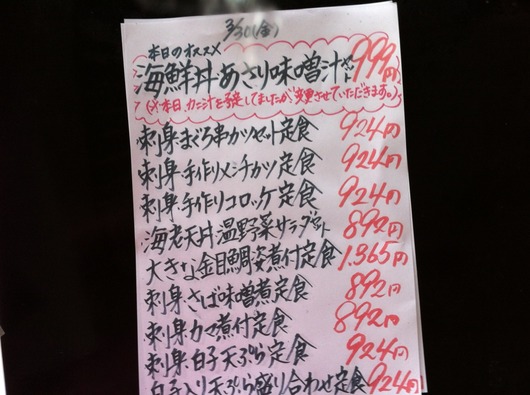 3/30(金)
本日のオススメ
海鮮丼・あさり味噌汁セット 999円
(※本日、カニ汁を予定してましたが、変更させていただきます。)
刺身・まぐろ串カツセット定食 924円
刺身・手作りメンチカツ定食 924円
刺身・手作りコロッケ定食 924円
海老天丼・温野菜サラダセット 892円
大きな金目鯛姿煮付定食 1.365円
刺身・さば味噌煮定食 892円
刺身・カマ煮付定食 892円
刺身・白子天ぷら定食 924円
白子入り天ぷら盛り合わせ定食 924円